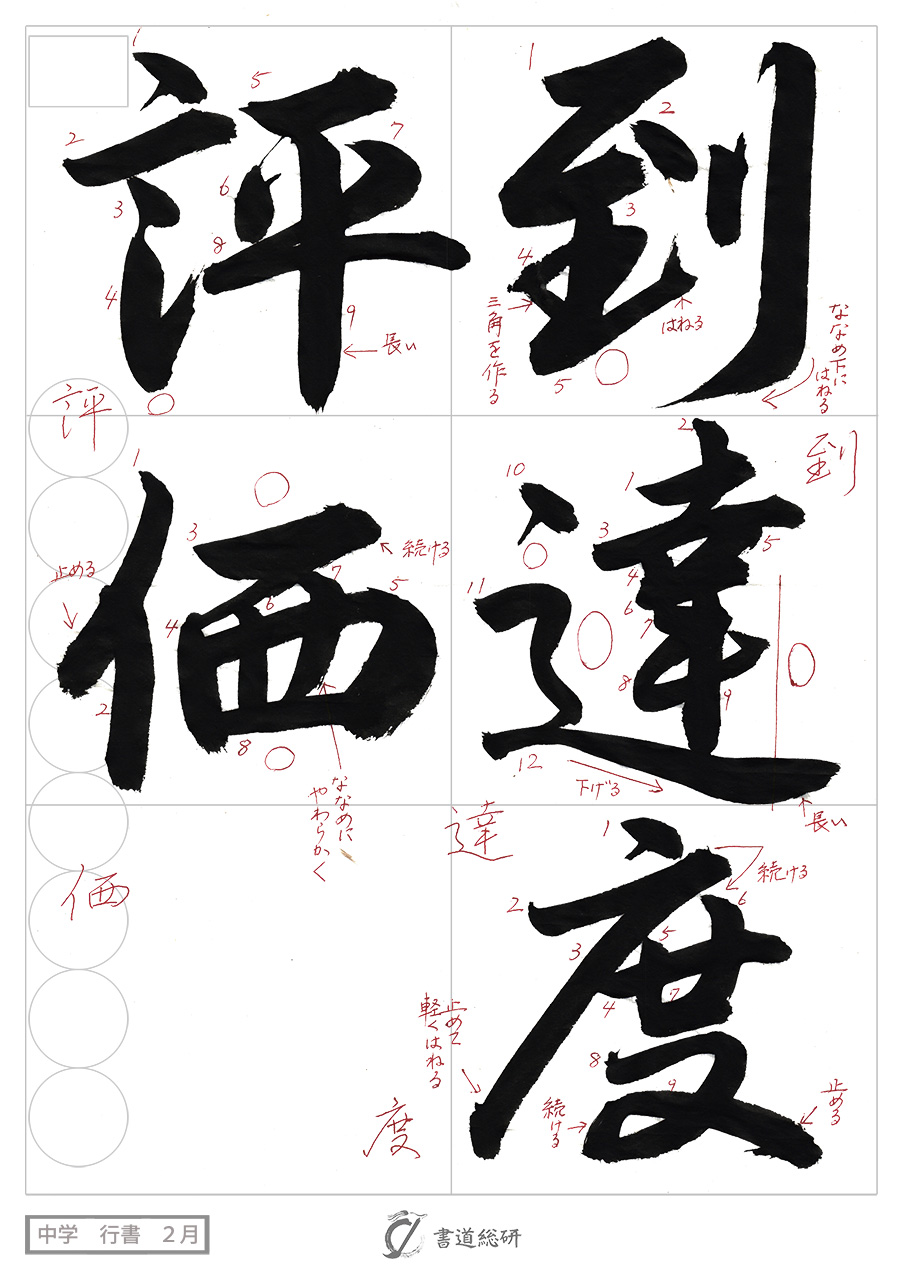 到
達
度
評
価
1
2
3
4
5
三角を作る
はねる
ななめ下に
はねる
到
1
2
3
4
5
6
7
8
9
10
11
12
下げる
長い
達
1
2
3
4
5
6
7
8
9
続ける
止めて
軽くはねる
続ける
止める
度
1
2
3
4
5
6
7
8
9
長い
評
1
2
3
4
5
6
7
8
止める
続ける
ななめに
やわらかく
価
中学 行書 2月
書道総研